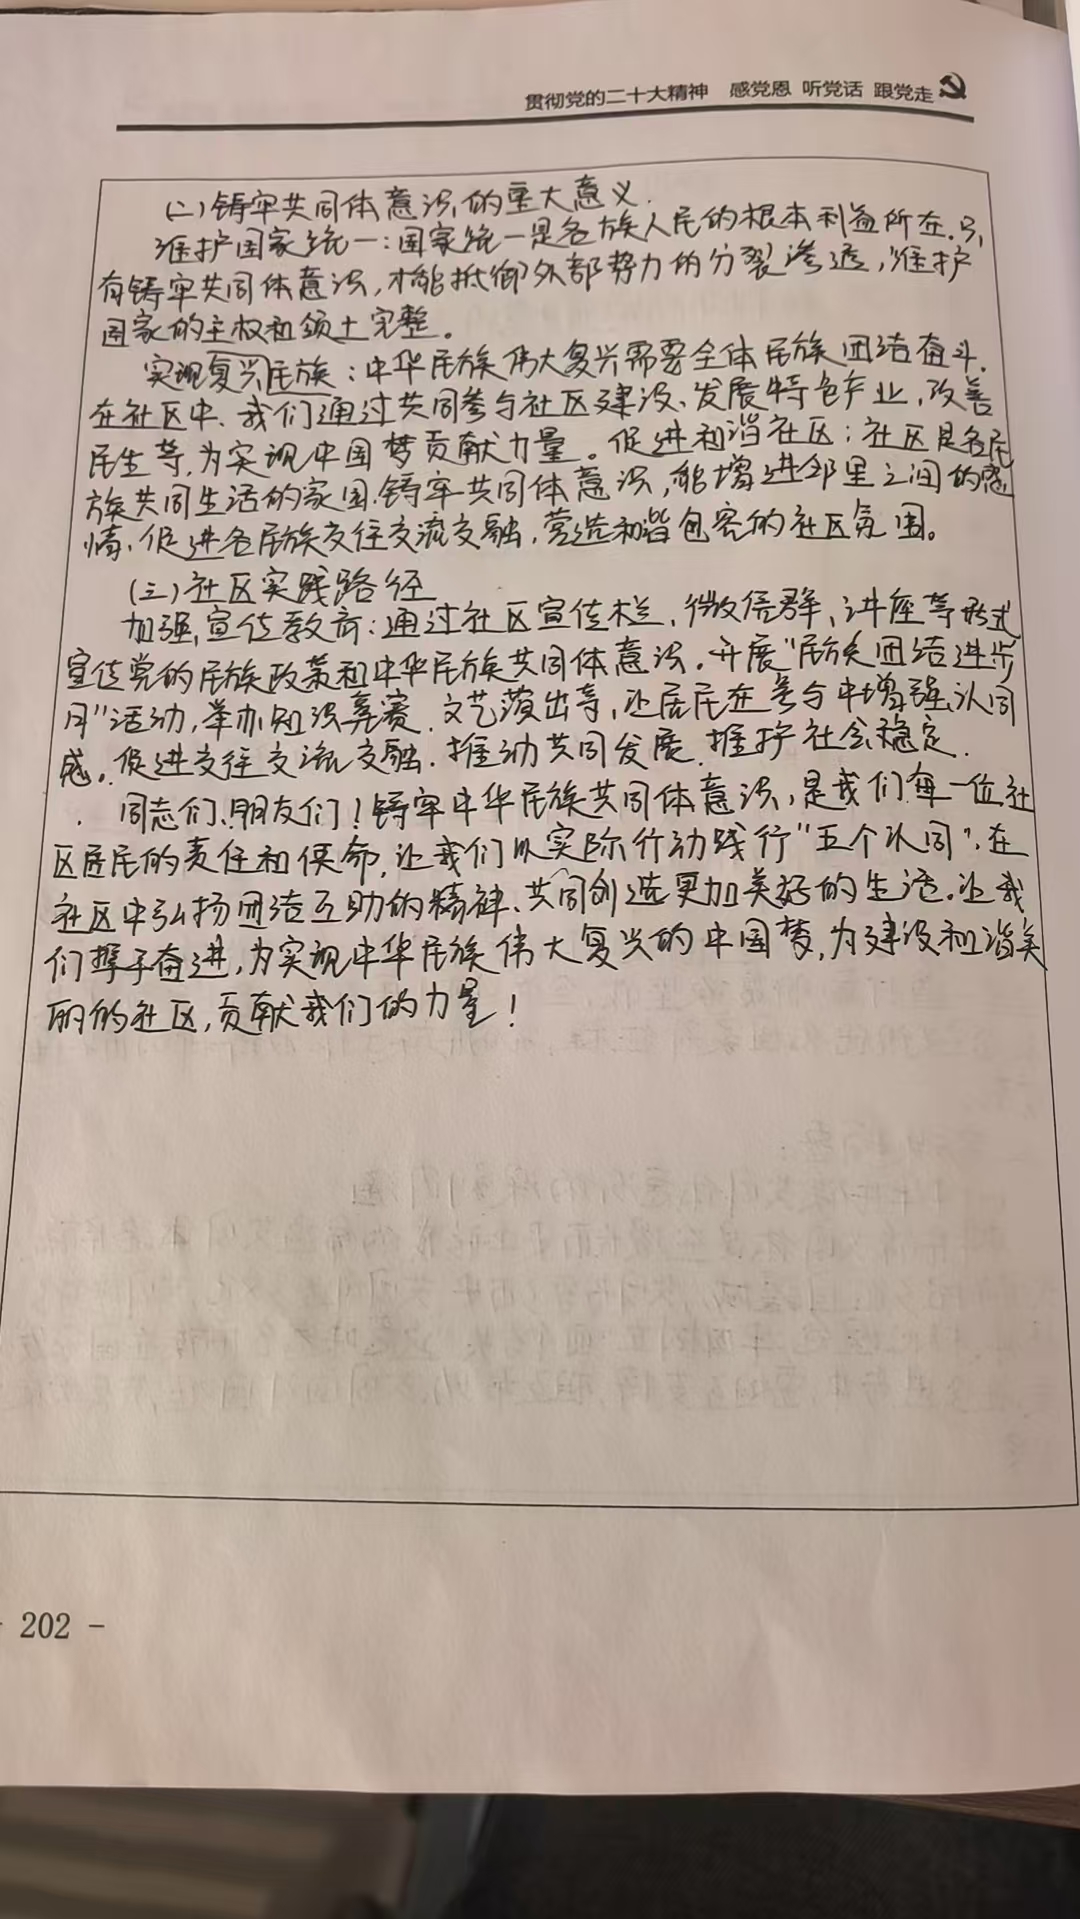 贯彻党的二十大精神 感党恩 听党话 跟党走
(二)铸牢共同体意识的重大意义.
维护国家统一:国家统一是各族人民的根本利益所在.只
有铸牢共同体意识,才能抵御外部势力的分裂渗透,维护
国家的主权和领土完整。
实现复兴民族:中华民族伟大复兴需要全体民族团结奋斗.
在社区中、我们通过共同参与社区建设、发展特色产业,改善
民生等,为实现中国梦贡献力量。促进和谐社区:社区是各民
族共同生活的家园.铸牢共同体意识,能增进邻里之间的感
情、促进各民族交往交流交融,营造和谐包容的社区氛围。
(三)社区实践路径
加强宣传教育:通过社区宣传栏,微信群,讲座等形式
宣传党的民族政策和中华民族共同体意识.开展"民族团结进步
月"活动,举办知识竞赛.文艺演出等,让居民在参与中增强认同
感。促进交往交流交融.推动共同发展.维护社会稳定.
同志们、朋友们!铸牢中华民族共同体意识,是我们每一位社
区居民的责任和使命,让我们以实际行动践行"五个认同".在
社区中弘扬团结互助的精神、共同创造更加美好的生活.让我
们携手奋进,为实现中华民族伟大复兴的中国梦,为建设和谐美
丽的社区,贡献我们的力量!
- 202 -